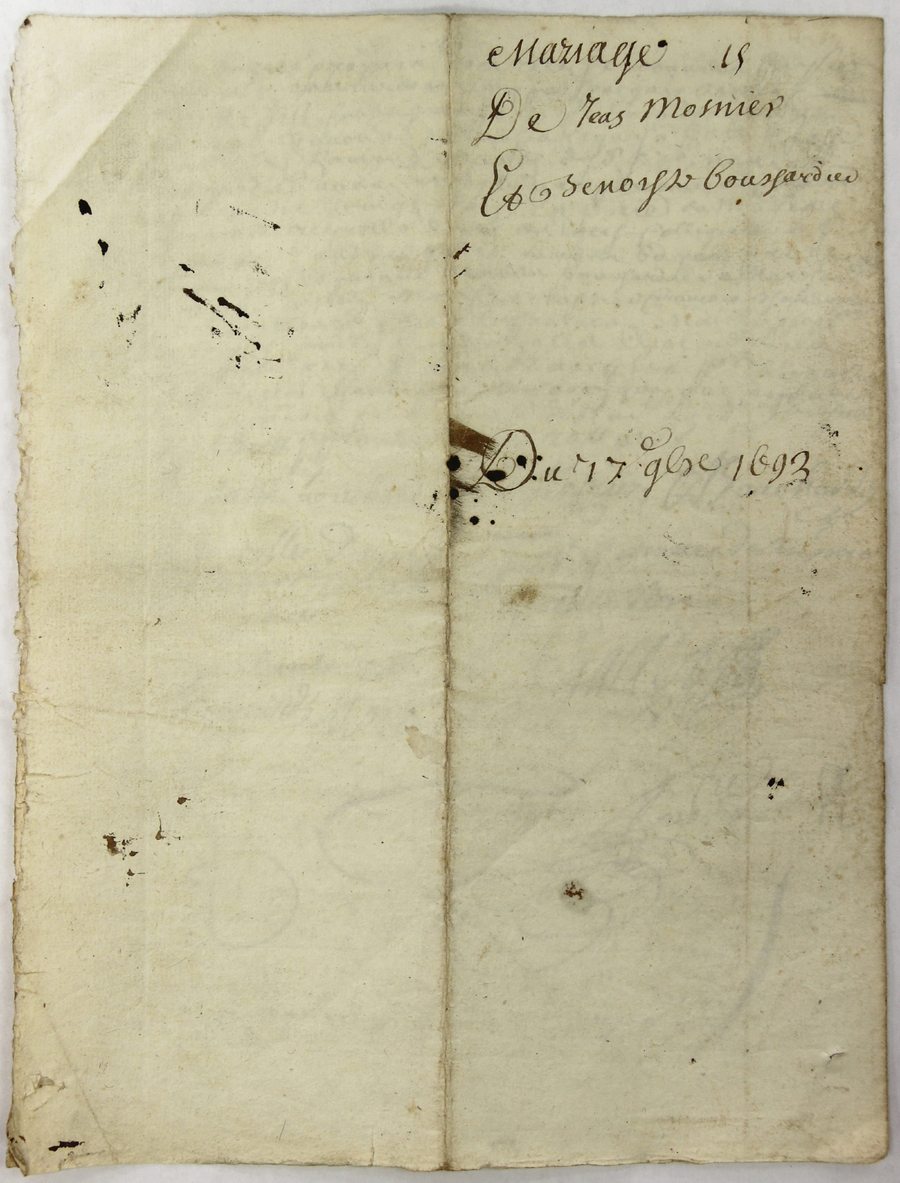 Mariage 15
De Jean Mosnier
Et Benoiste boussardier
Du 17e 9bre 1693